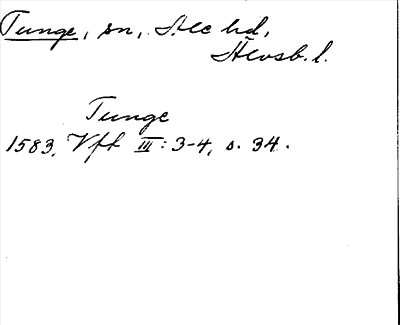 Tunge, sn, Ale hd,
Älvsb. l.
Tunge
1583. Vfl III: 3-4, s. 34.